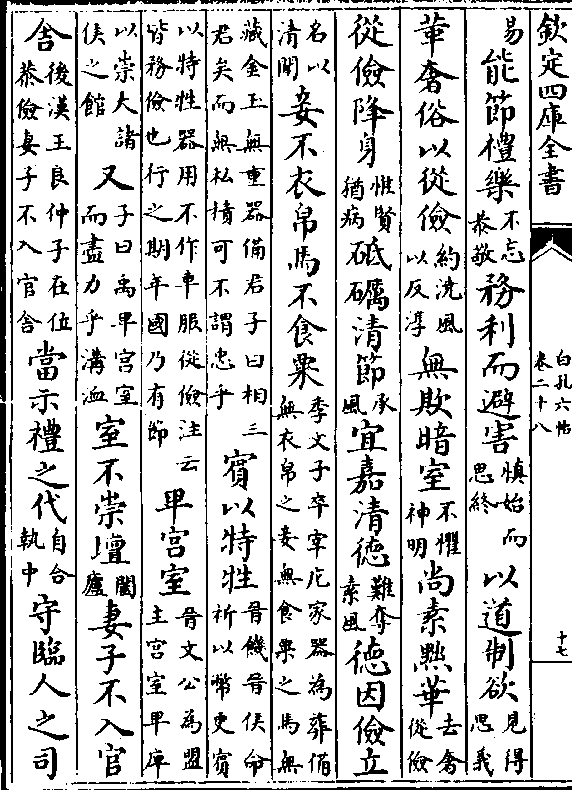 欽定四庫全書
白孔六帖
卷二十八
十七
易能節禮樂不忘恭敬務利而避害慎始而思終以道制欲見得思義
華奢俗以從儉約洗風以反淳無欺暗室不懼神明尚素黜華去奢從儉
從儉降身惟賢猶病砥礪清節承風宜嘉清德難奪素風德因儉立
名以清聞妾不衣帛馬不食粟季文子卒宰庀家器為葬備無衣帛之妾無食粟之馬無
藏金玉無重器備君子曰相三君矣而無私積可不謂忠乎賓以特牲晉饑晉侯命祈以幣更賓
以特牲器用不作車服從儉注云皆務儉也行之期年國乃有節卑宮室晉文公為盟主宮室卑庳
以崇大諸侯之館又子曰禹卑宮室而盡力乎溝洫室不崇壇闔廬妻子不入官
舍後漢王良仲子在位恭儉妻子不入官舍當示禮之代自合執中守臨人之司